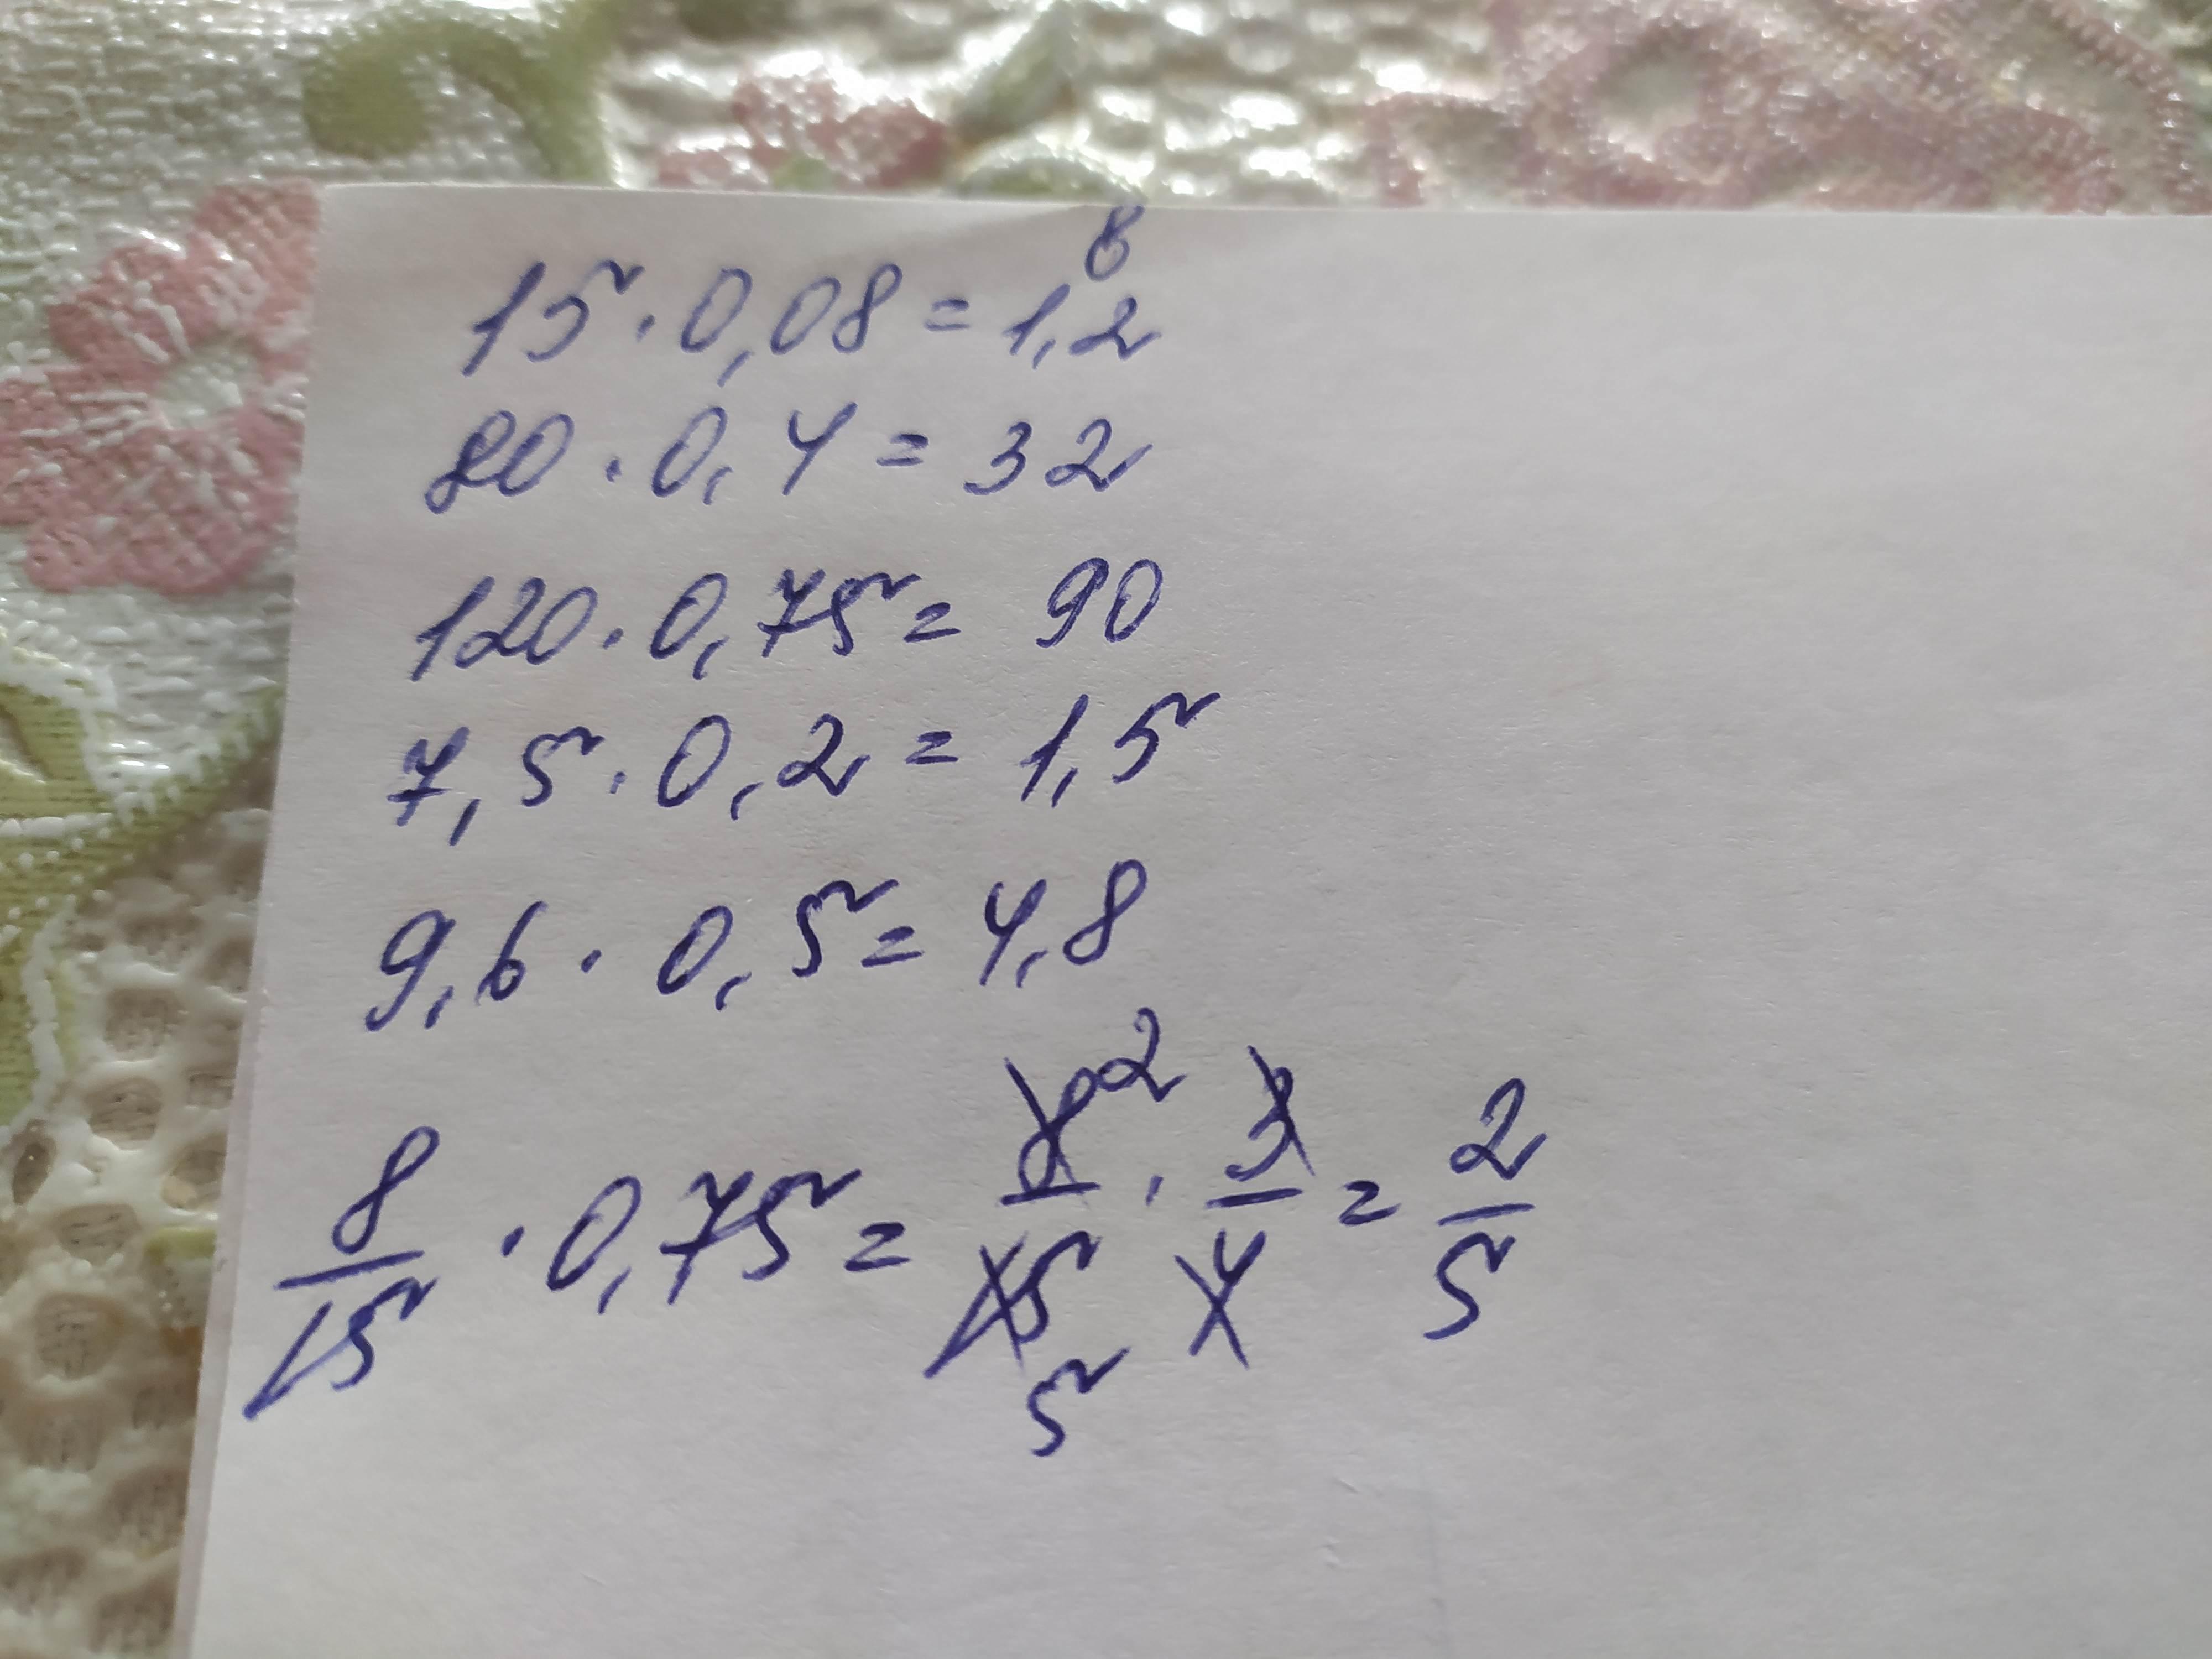 8
15 · 0,08 = 1,2
80 · 0,4 = 32
120 · 0,75 = 90
7,5 · 0,2 = 1,5
9,6 · 0,5 = 4,8
8/15 · 0,75 = 8/15 2/5 · 3/4 = 2/5